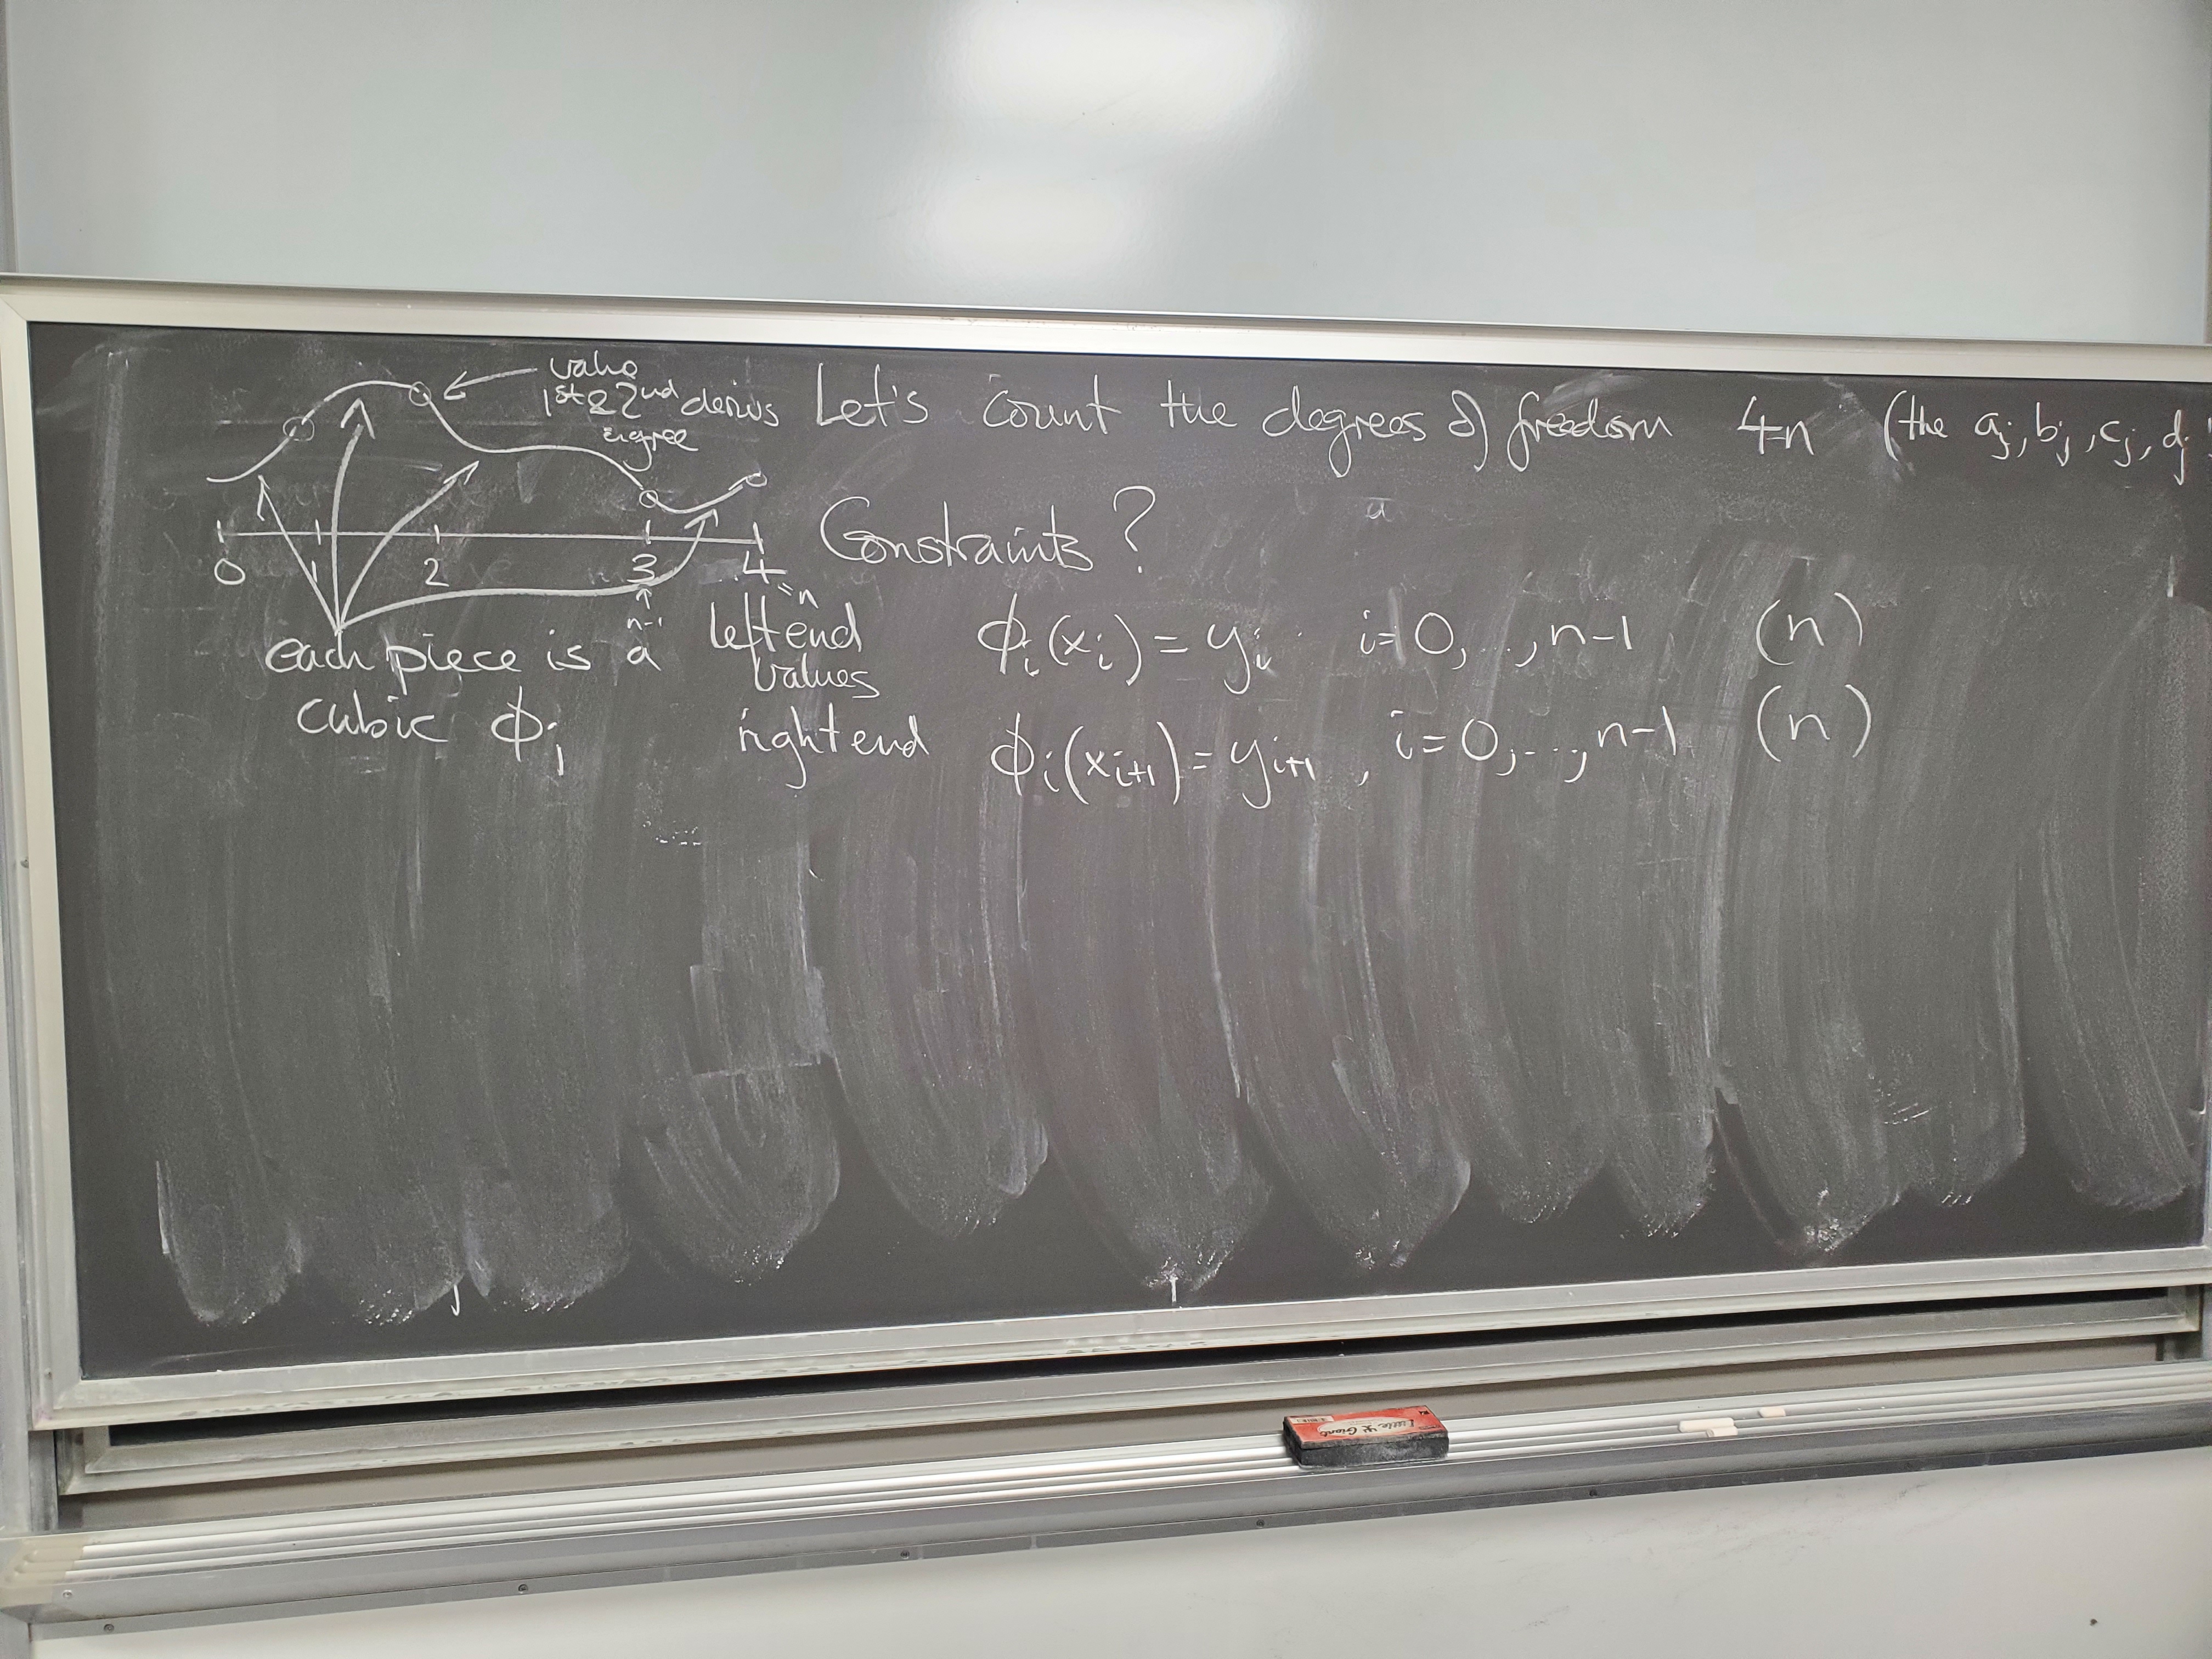 value
1st & 2nd derivs
agree
0 1 2 3 4
=n
n-1
each piece is a
cubic ϕj
Let's count the degrees of freedom 4n (the aj, bj, cj, dj
Constraints?
left end values ϕi(xi) = yi i=0,...,n-1 (n)
right end ϕi(xi+1) = yi+1, i=0,...,n-1 (n)
Little Giant